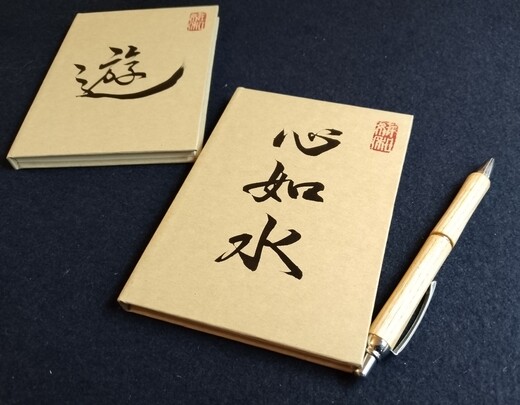 遊
心
如
水